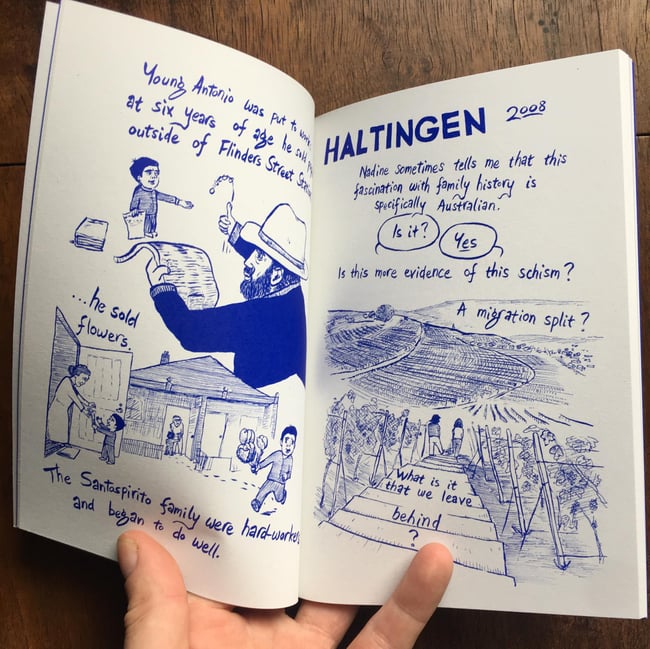 Young Antonio was put to
at six years of age he sold
outside of Flinders Street
...he sold
flowers.
The Santospirito family were
and began to do well.
HALTINGEN 2008
Nadine sometimes tells me that this
fascination with family history is
specifically Australian.
Is it? Yes
Is this more evidence of this schism?
A migration split?
What is it
that we leave
behind
?